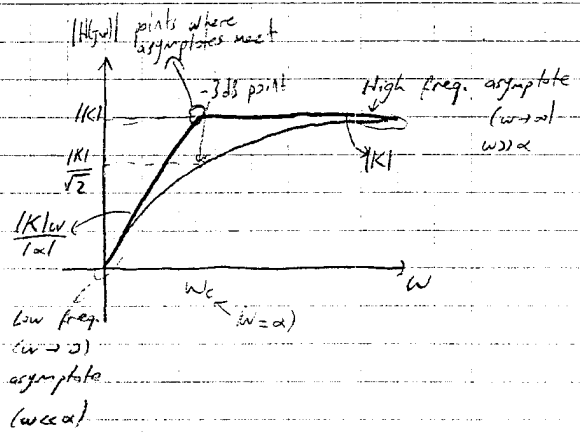 |H(jω)| points where
asymptotes meet
-3dB point
High freq. asymptote
(ω→∞)
ω>>α
|K|
|K|
|K|
√2
|K|ω
|α|
ωc
(ω=α)
ω
Low freq.
(ω→0)
asymptote
(ω<<α)